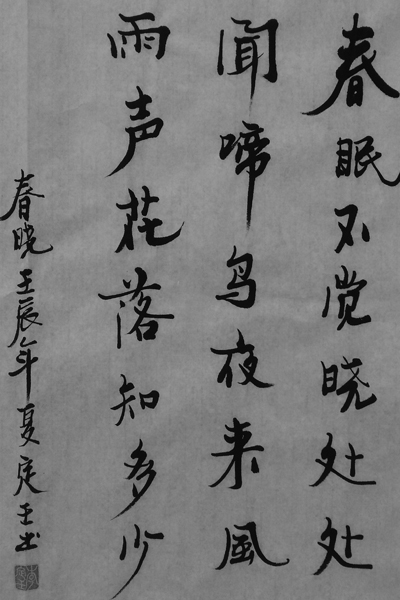 春眠不觉晓处处
聞啼鸟夜来風
雨声花落知多少
春晓壬辰年夏书